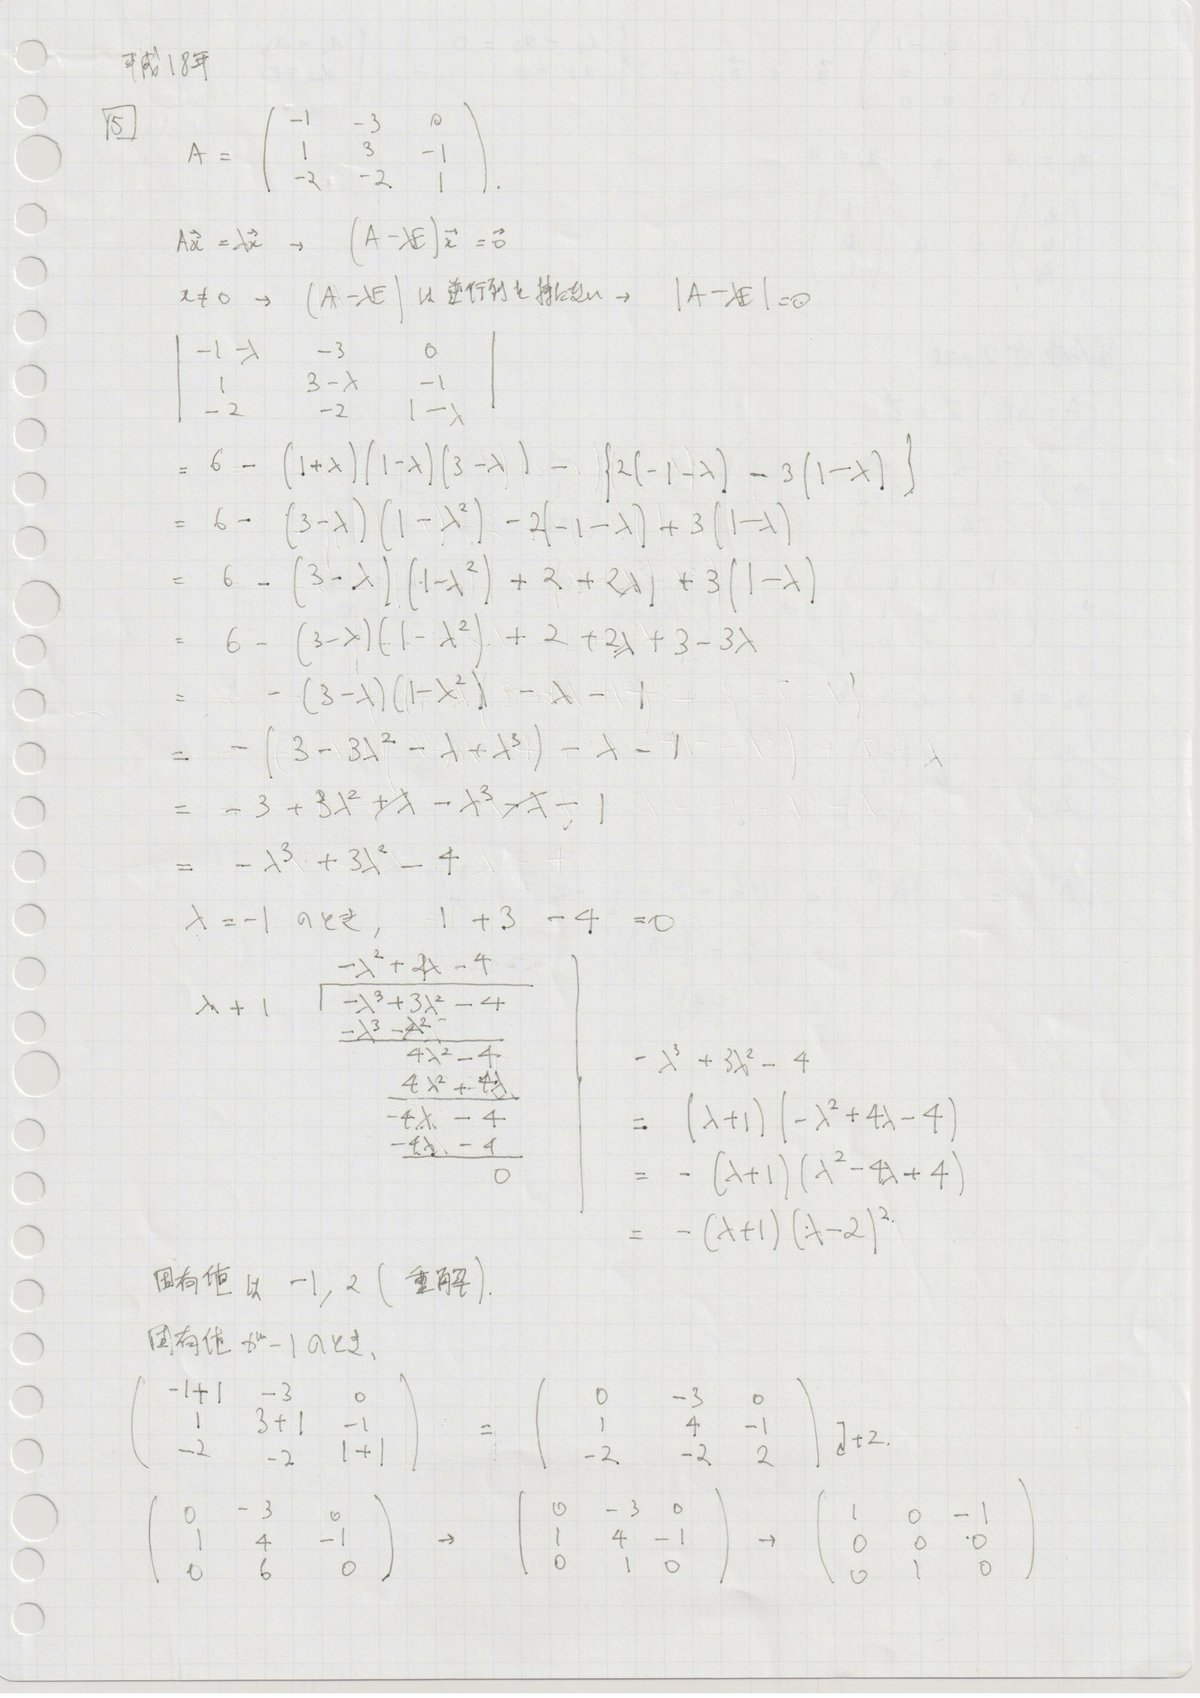 平成18年
5
A = ( -1 -3 0
1 3 -1
-2 -2 1 ).
Ax⃗ = λx⃗ → (A-λE)x⃗ = 0⃗
x≠0 → (A-λE) は逆行列を持たない → |A-λE| = 0
| -1-λ -3 0
1 3-λ -1
-2 -2 1-λ |
= 6 - (1+λ)(1-λ)(3-λ) - {2(-1-λ) - 3(1-λ)}
= 6 - (3-λ)(1-λ²) - 2(-1-λ) + 3(1-λ)
= 6 - (3-λ)(1-λ²) + 2 + 2λ) + 3(1-λ)
= 6 - (3-λ)(1-λ²) + 2 + 2λ + 3 - 3λ
= - (3-λ)(1-λ²) - λ - 1
= - (3 - 3λ² - λ + λ³) - λ - 1
= - 3 + 3λ² + λ - λ³ - λ - 1
= - λ³ + 3λ² - 4
λ = -1 のとき, 1 + 3 - 4 = 0
-λ² + 4λ - 4
λ + 1 -λ³ + 3λ² - 4
-λ³ - λ²
4λ² - 4
4λ² + 4λ
-4λ - 4
-4λ - 4
0
- λ³ + 3λ² - 4
= (λ+1)(-λ² + 4λ - 4)
= - (λ+1)(λ² - 4λ + 4)
= - (λ+1)(λ-2)²
固有値は -1, 2 (重解).
固有値が -1 のとき、
( -1+1 -3 0
1 3+1 -1
-2 -2 1+1 )
= ( 0 -3 0
1 4 -1
-2 -2 2 ) +2.
( 0 -3 0
1 4 -1
0 6 0 )
→ ( 0 -3 0
1 4 -1
0 1 0 )
→ ( 1 0 -1
0 0 0
0 1 0 )